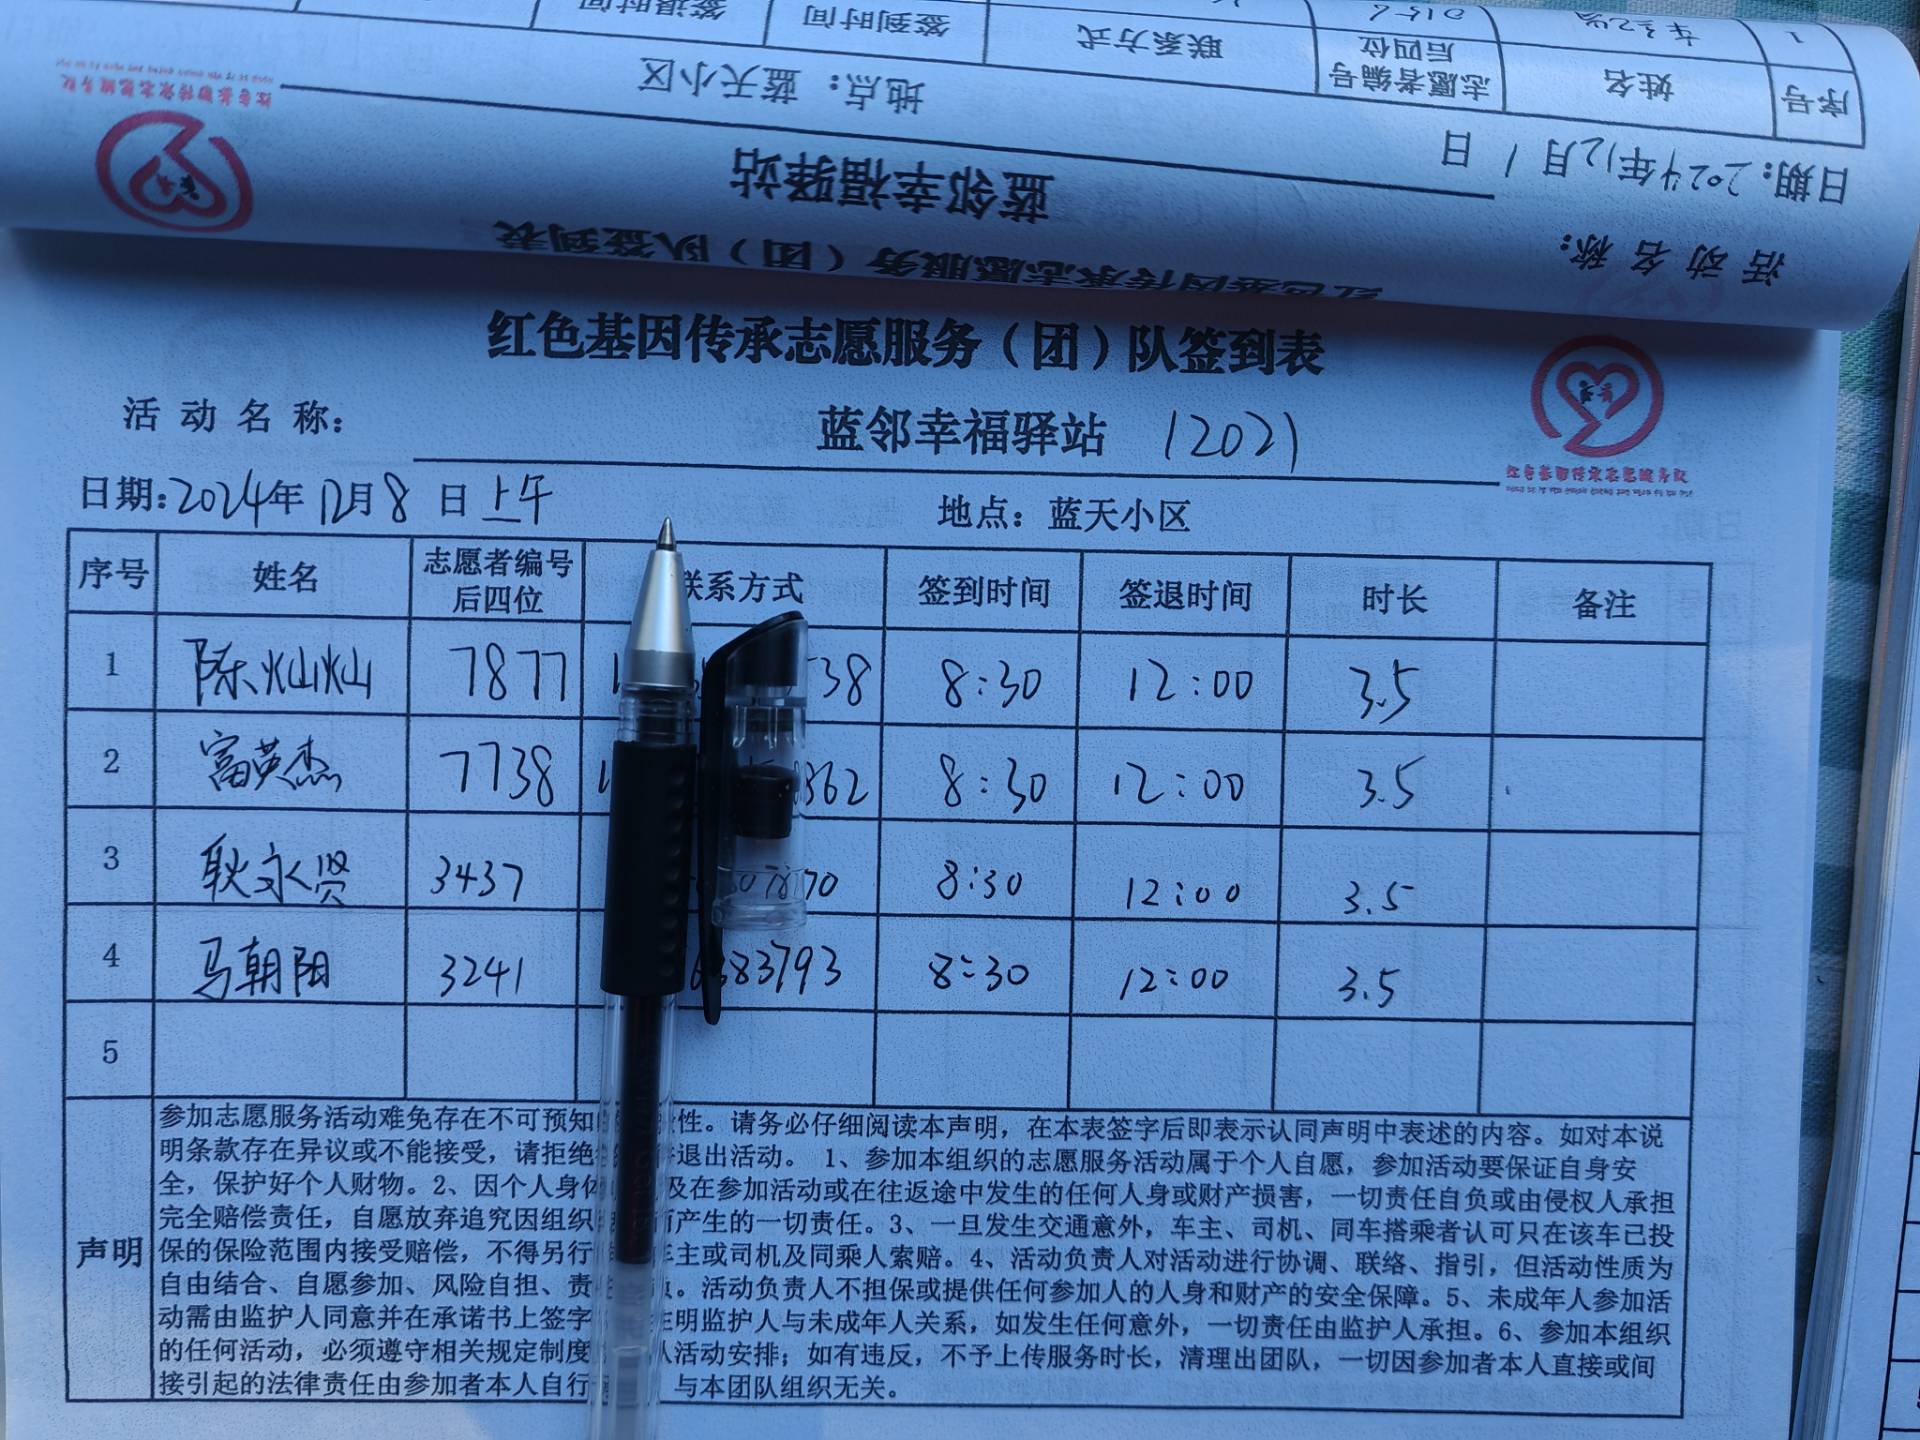 序号 姓名 志愿者编号后四位 联系方式 签到时间 签退时间
日期:2024年12月1日 地点：蓝天小区
蓝邻幸福驿站
活动名称:
红色基因传承志愿服务（团）队签到表
红色基因传承志愿服务（团）队签到表
活动名称: 蓝邻幸福驿站 12021
红色基因传承志愿服务队
日期:2024年12月8日上午 地点：蓝天小区
序号 姓名 志愿者编号后四位 联系方式 签到时间 签退时间 时长 备注
1 陈灿灿 7877 38 8:30 12:00 3.5
2 富英杰 7738 362 8:30 12:00 3.5
3 耿永贤 3437 70 8:30 12:00 3.5
4 马朝阳 3241 383793 8:30 12:00 3.5
5
声明
参加志愿服务活动难免存在不可预知 性。请务必仔细阅读本声明，在本表签字后即表示认同声明中表述的内容。如对本说
明条款存在异议或不能接受，请拒绝 退出活动。 1、参加本组织的志愿服务活动属于个人自愿，参加活动要保证自身安
全，保护好个人财物。2、因个人身体 及在参加活动或在往返途中发生的任何人身或财产损害，一切责任自负或由侵权人承担
完全赔偿责任，自愿放弃追究因组织 而产生的一切责任。3、一旦发生交通意外，车主、司机、同车搭乘者认可只在该车已投
保的保险范围内接受赔偿，不得另行 车主或司机及同乘人索赔。4、活动负责人对活动进行协调、联络、指引，但活动性质为
自由结合、自愿参加、风险自担、责 。活动负责人不担保或提供任何参加人的人身和财产的安全保障。5、未成年人参加活
动需由监护人同意并在承诺书上签字 注明监护人与未成年人关系，如发生任何意外，一切责任由监护人承担。6、参加本组织
的任何活动，必须遵守相关规定制度 队活动安排；如有违反，不予上传服务时长，清理出团队，一切因参加者本人直接或间
接引起的法律责任由参加者本人自行 与本团队组织无关。